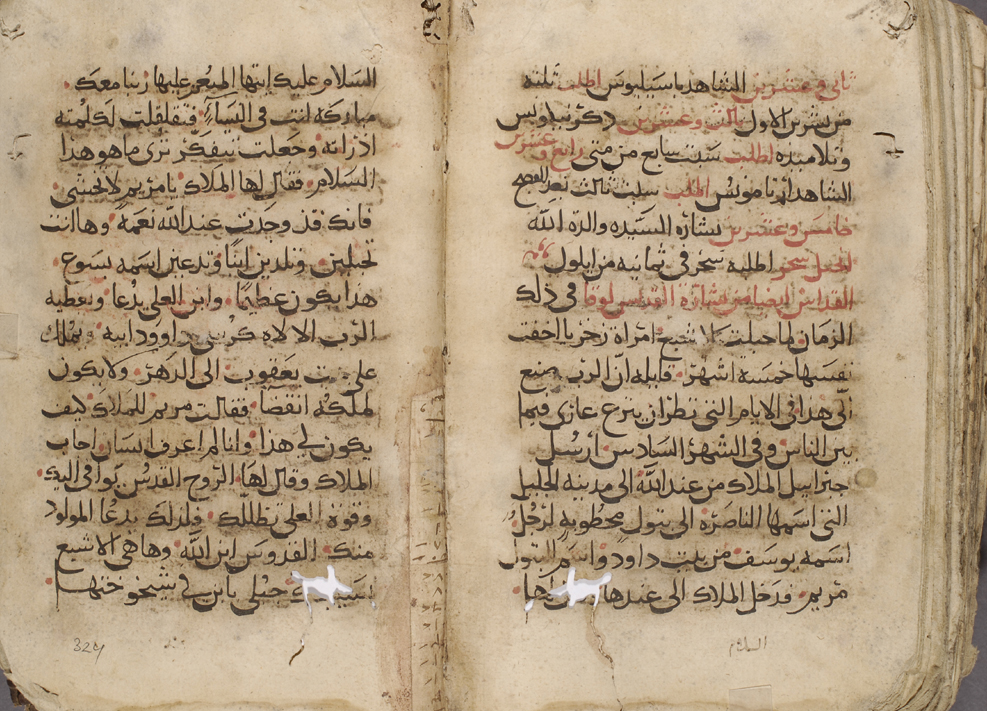 ثاني وعشرين الشاهد باسيليوس اطلب ثلثه
من تشرين الاول ثالث وعشرين ذكر
وتلاميذه اطلب سبت سابع من متى رابع وعشرين
الشاهد ارتامونيس اطلب سبت ثالث بعد الفصح
خامس وعشرين بشارة السيده والدة الله
انجيل سحر اطلبه سحر في ثمانيه من ايلول
القداس ايضا من بشارة القديس لوقا في ذلك
الزمان لما حبلت الاشبع امراة زخريا اخفت
نفسها خمسة اشهر قايله ان الرب صنع
الي هذا في الايام التي نظر ان ينزع عاري فيما
بين الناس وفي الشهر السادس ارسل
جبراييل الملاك من عند الله الى مدينه الجليل
التي اسمها الناصره الى بتول مخطوبه لرجل
اسمه يوسف من بيت داوود واسم البتول
مريم فدخل الملاك الى عندها
السلام
السلام عليك ايتها المنعم عليها ربنا معك
مباركة انت في النساء فتقلقلت لكلمته
اذ راته وجعلت تتفكر ترى ما هو هذا
السلام فقال لها الملاك يا مريم لا تخشي
فانك قد وجدتي عند الله نعمة وها انت
تحبلين وتلدين ابنا وتدعين اسمه يسوع
هذا يكون عظيما وابن العلي يدعا ويعطيه
الرب الالاه كرسي داوود ابيه ويملك
على بيت يعقوب الى الدهر ولا يكون
لملكه انقضا فقالت مريم للملاك كيف
يكون لي هذا وانا لم اعرف انسان اجاب
الملاك وقال لها الروح القدس يوافي اليك
وقوة العلي تظللك فلذلك يدعا المولود
منك القدوس ابن الله وها هي الاشبع
حبلى بابن في شيخوختها
324